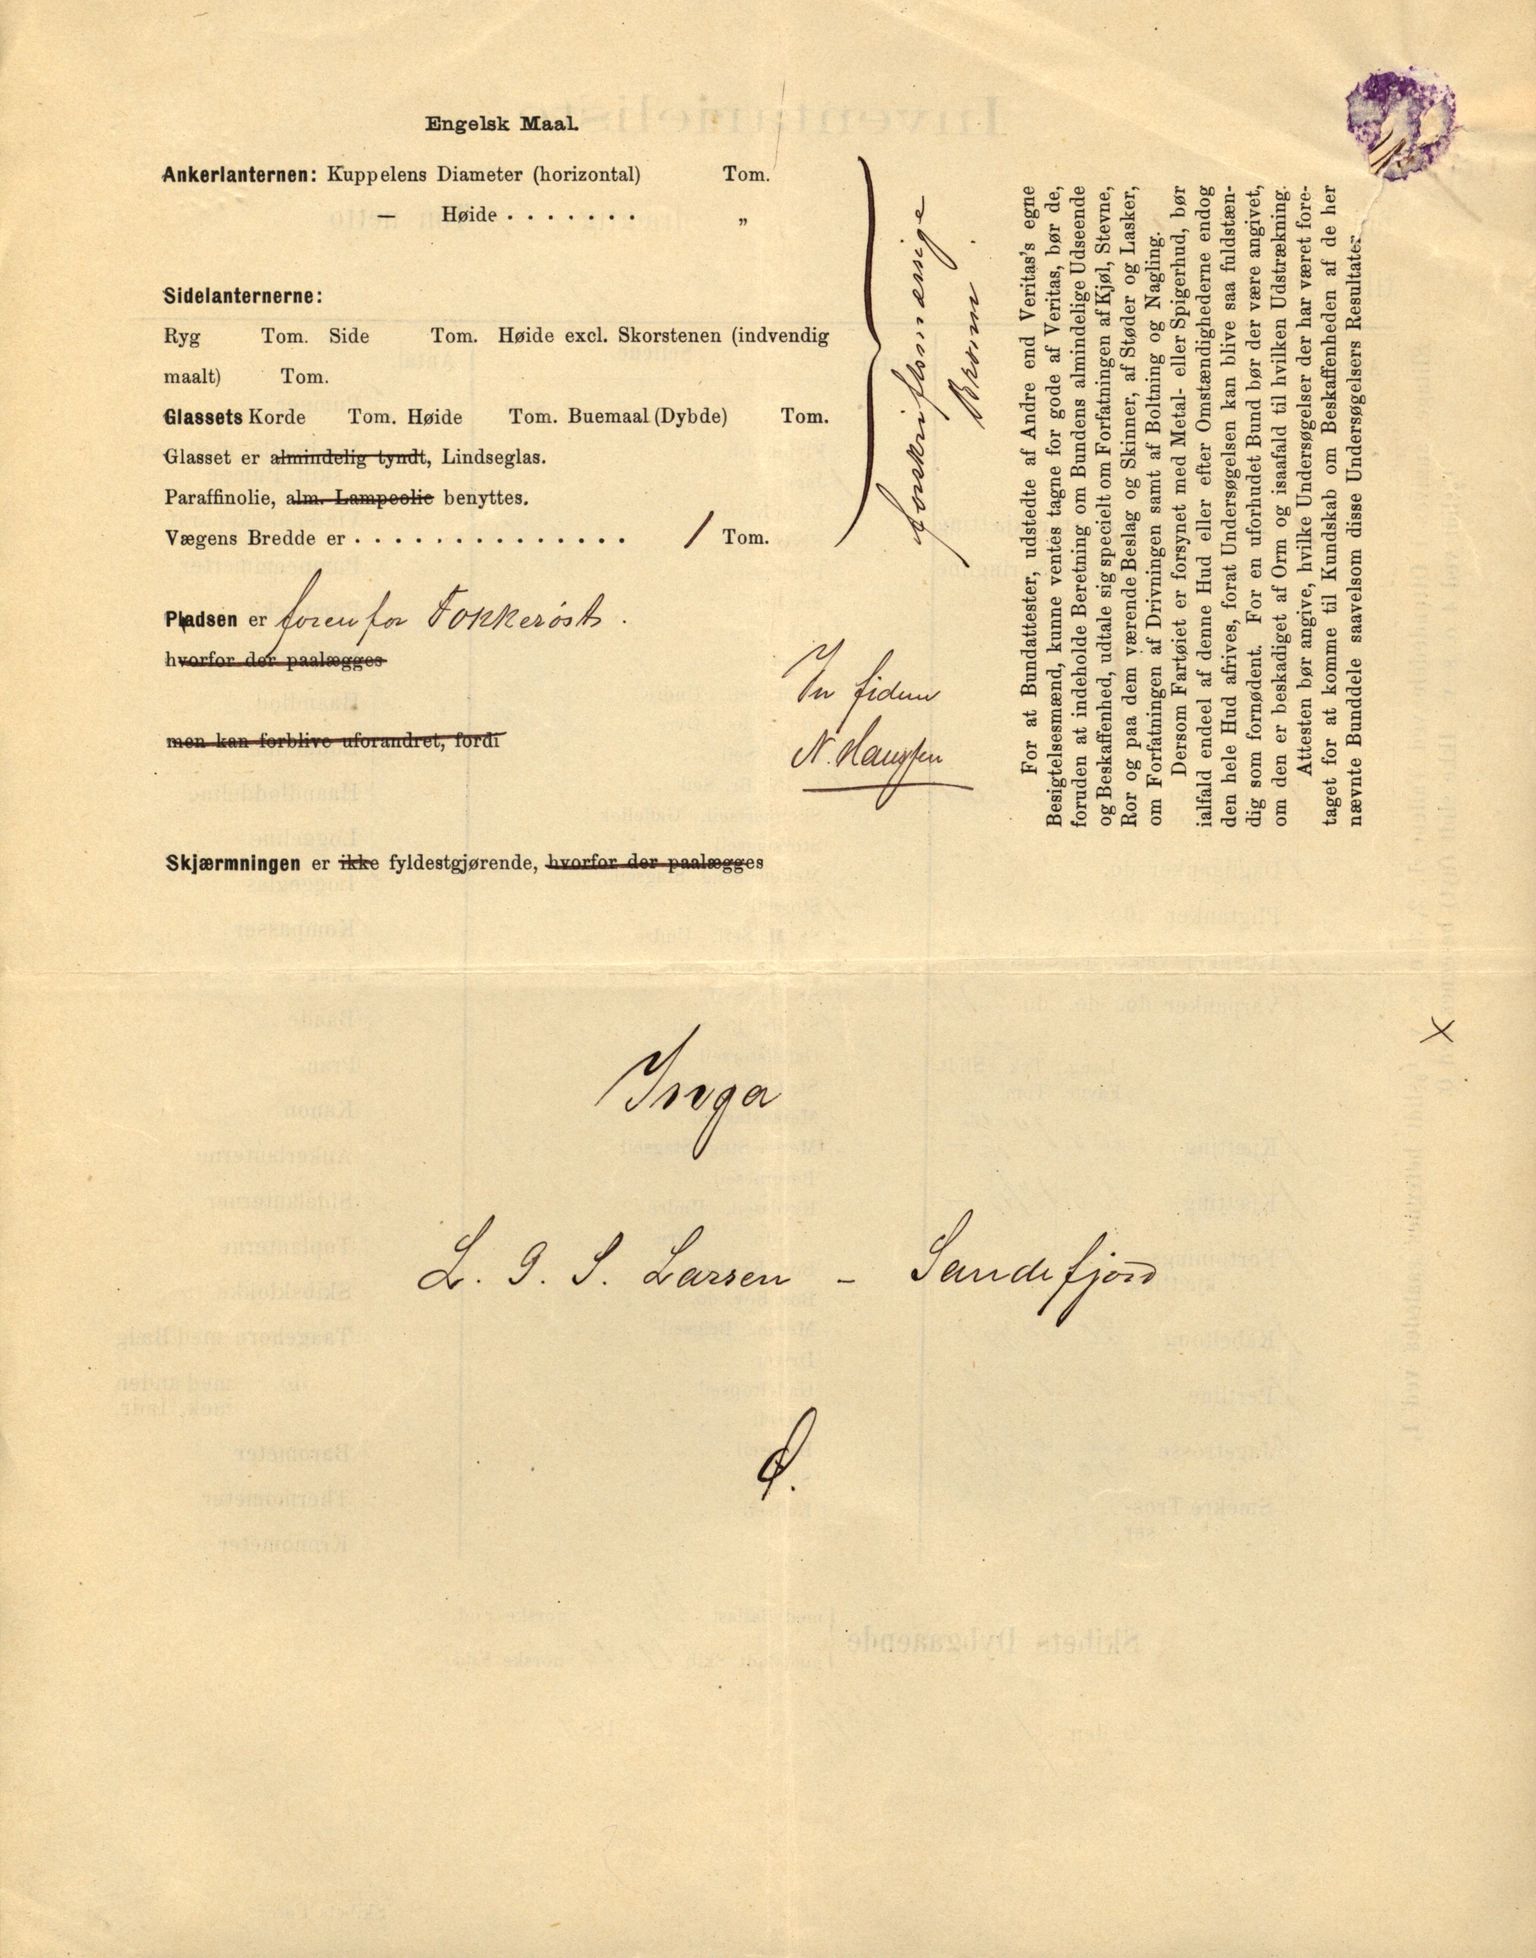 Engelsk Maal.
Ankerlanternen: Kuppelens Diameter (horizontal) Tom.
— Høide . . . . . . . „
Sidelanternerne:
Ryg Tom. Side Tom. Høide excl. Skorstenen (indvendig
maalt) Tom.
Glassets Korde Tom. Høide Tom. Buemaal (Dybde) Tom.
Glasset er almindelig tyndt, Lindseglas.
Paraffinolie, alm. Lampeolie benyttes.
Vægens Bredde er . . . . . . . . . . . . . . . 1 Tom.
forskriftsmæssige
Pladsen er foren for Fokkerøst.
hvorfor der paalægges
men kan forblive uforandret, fordi
In fidem
N. Hanssen
Skjærmningen er ikke fyldestgjørende, hvorfor der paalægges
For at Bundattester, udstedte af Andre end Veritas's egne
Besigtelsesmænd, kunne ventes tagne for gode af Veritas, bør de,
foruden at indeholde Beretning om Bundens almindelige Udseende
og Beskaffenhed, udtale sig specielt om Forfatningen af Kjøl, Stevne,
Ror og paa dem værende Beslag og Skinner, af Støder og Lasker,
om Forfatningen af Drivningen samt af Boltning og Nagling.
Dersom Fartøiet er forsynet med Metal- eller Spigerhud, bør
ialfald endeel af denne Hud eller efter Omstændighederne endog
den hele Hud afrives, forat Undersøgelsen kan blive saa fuldstæn-
dig som fornødent. For en uforhudet Bund bør der være angivet,
om den er beskadiget af Orm og isaafald til hvilken Udstrækning.
Attesten bør angive, hvilke Undersøgelser der har været fore-
taget for at komme til Kundskab om Beskaffenheden af de her
nævnte Bunddele saavelsom disse Undersøgelsers Resultater.
Inga
L. G. S. Larsen – Sandefjord